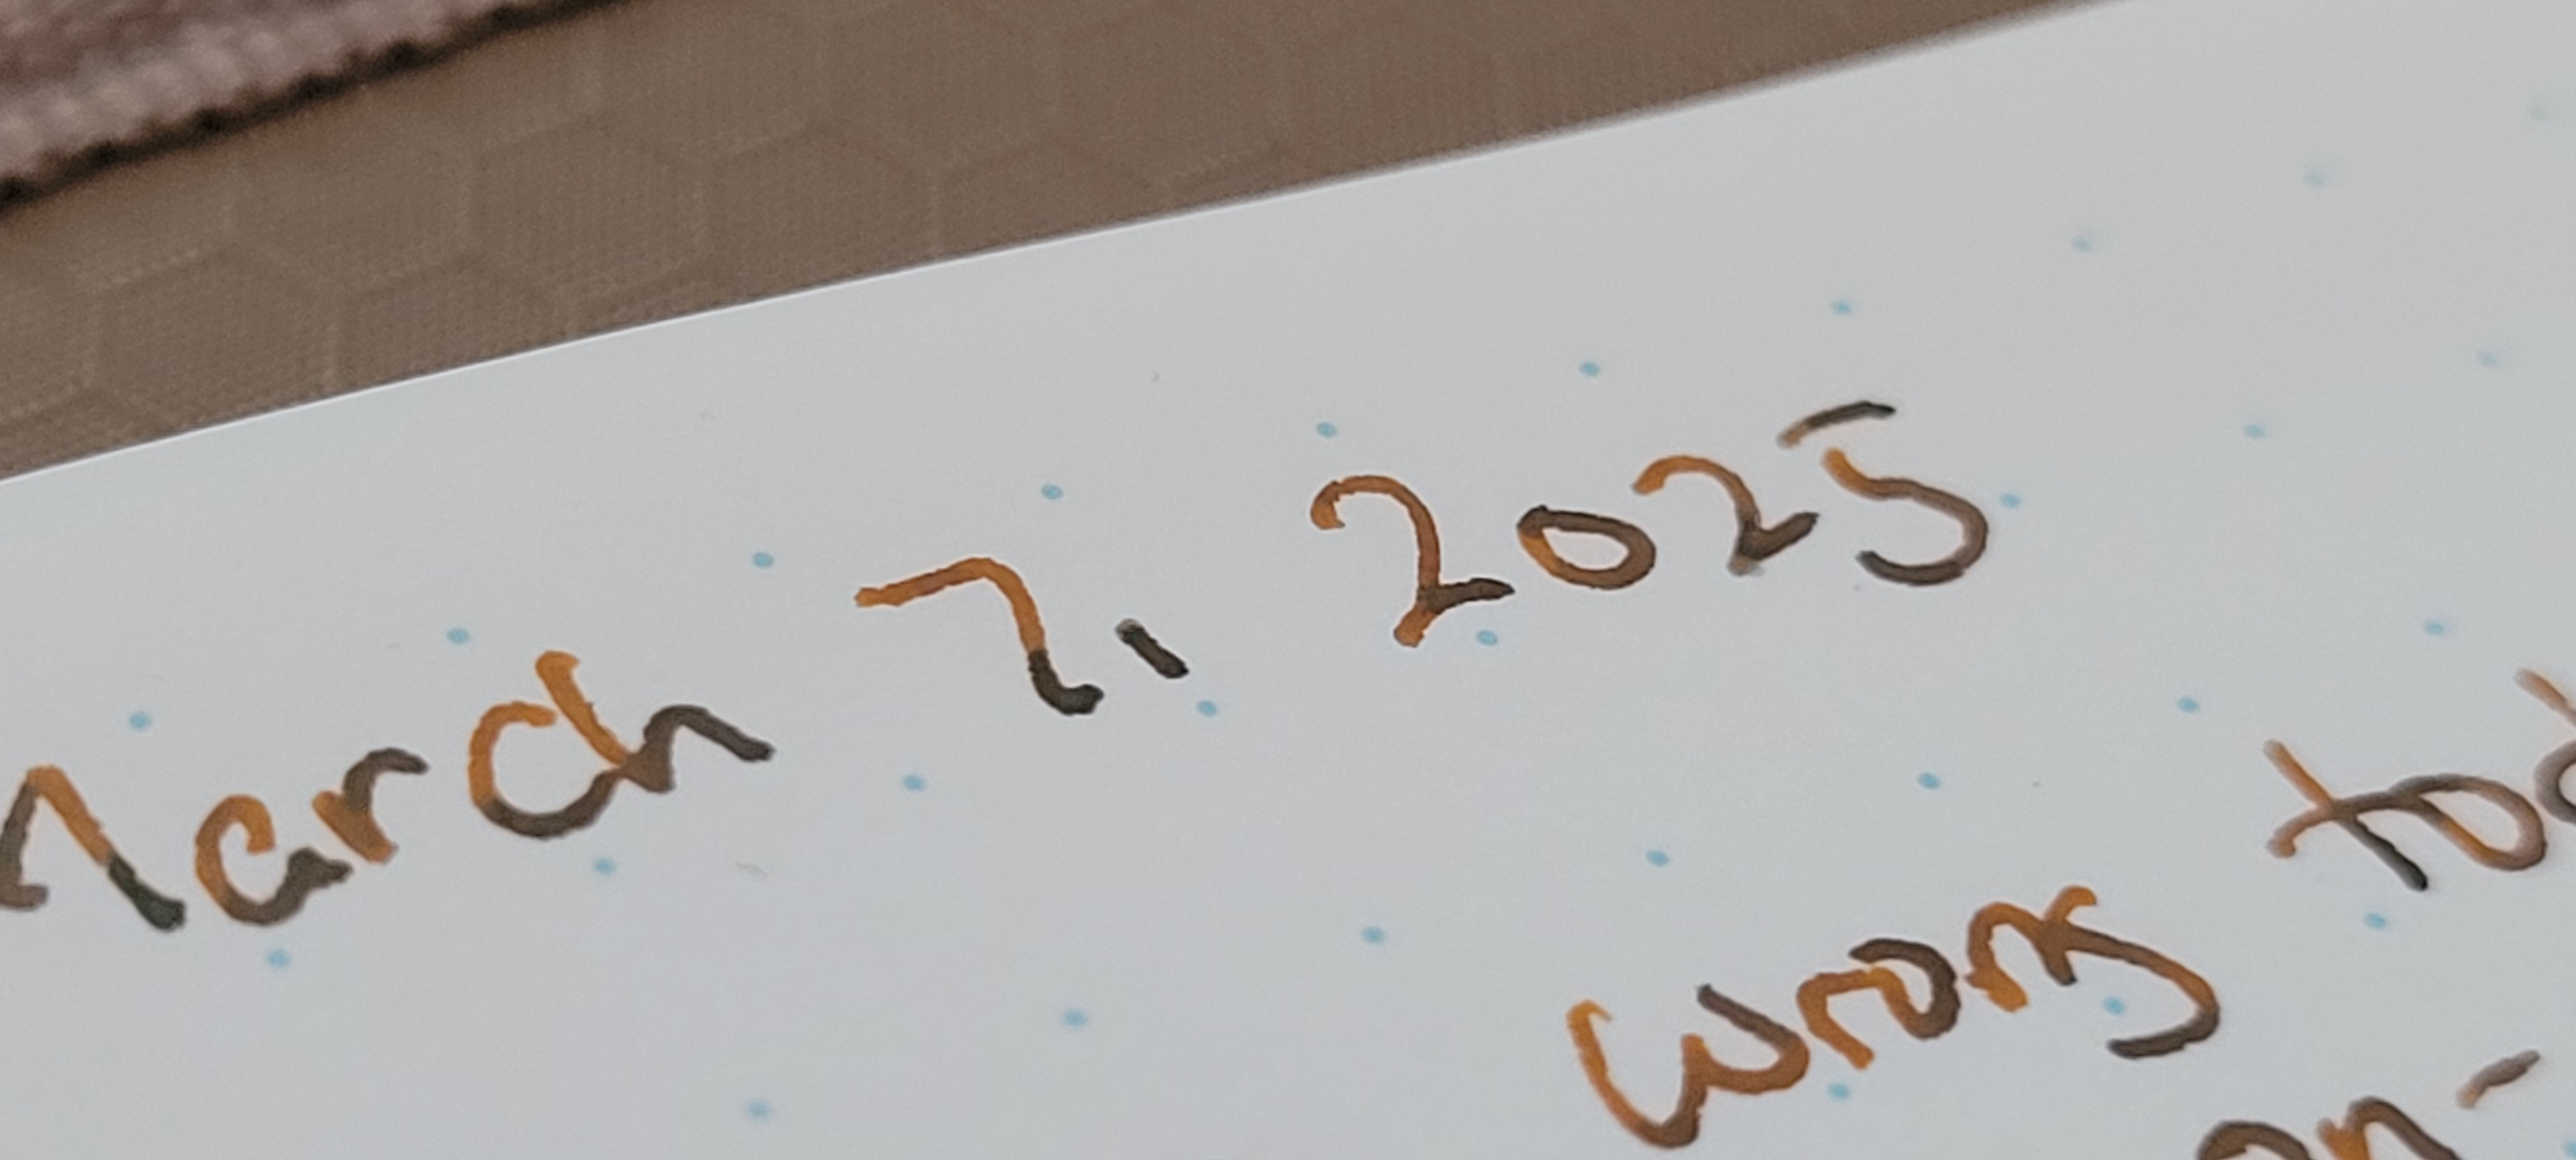 March 7, 2025
wrong